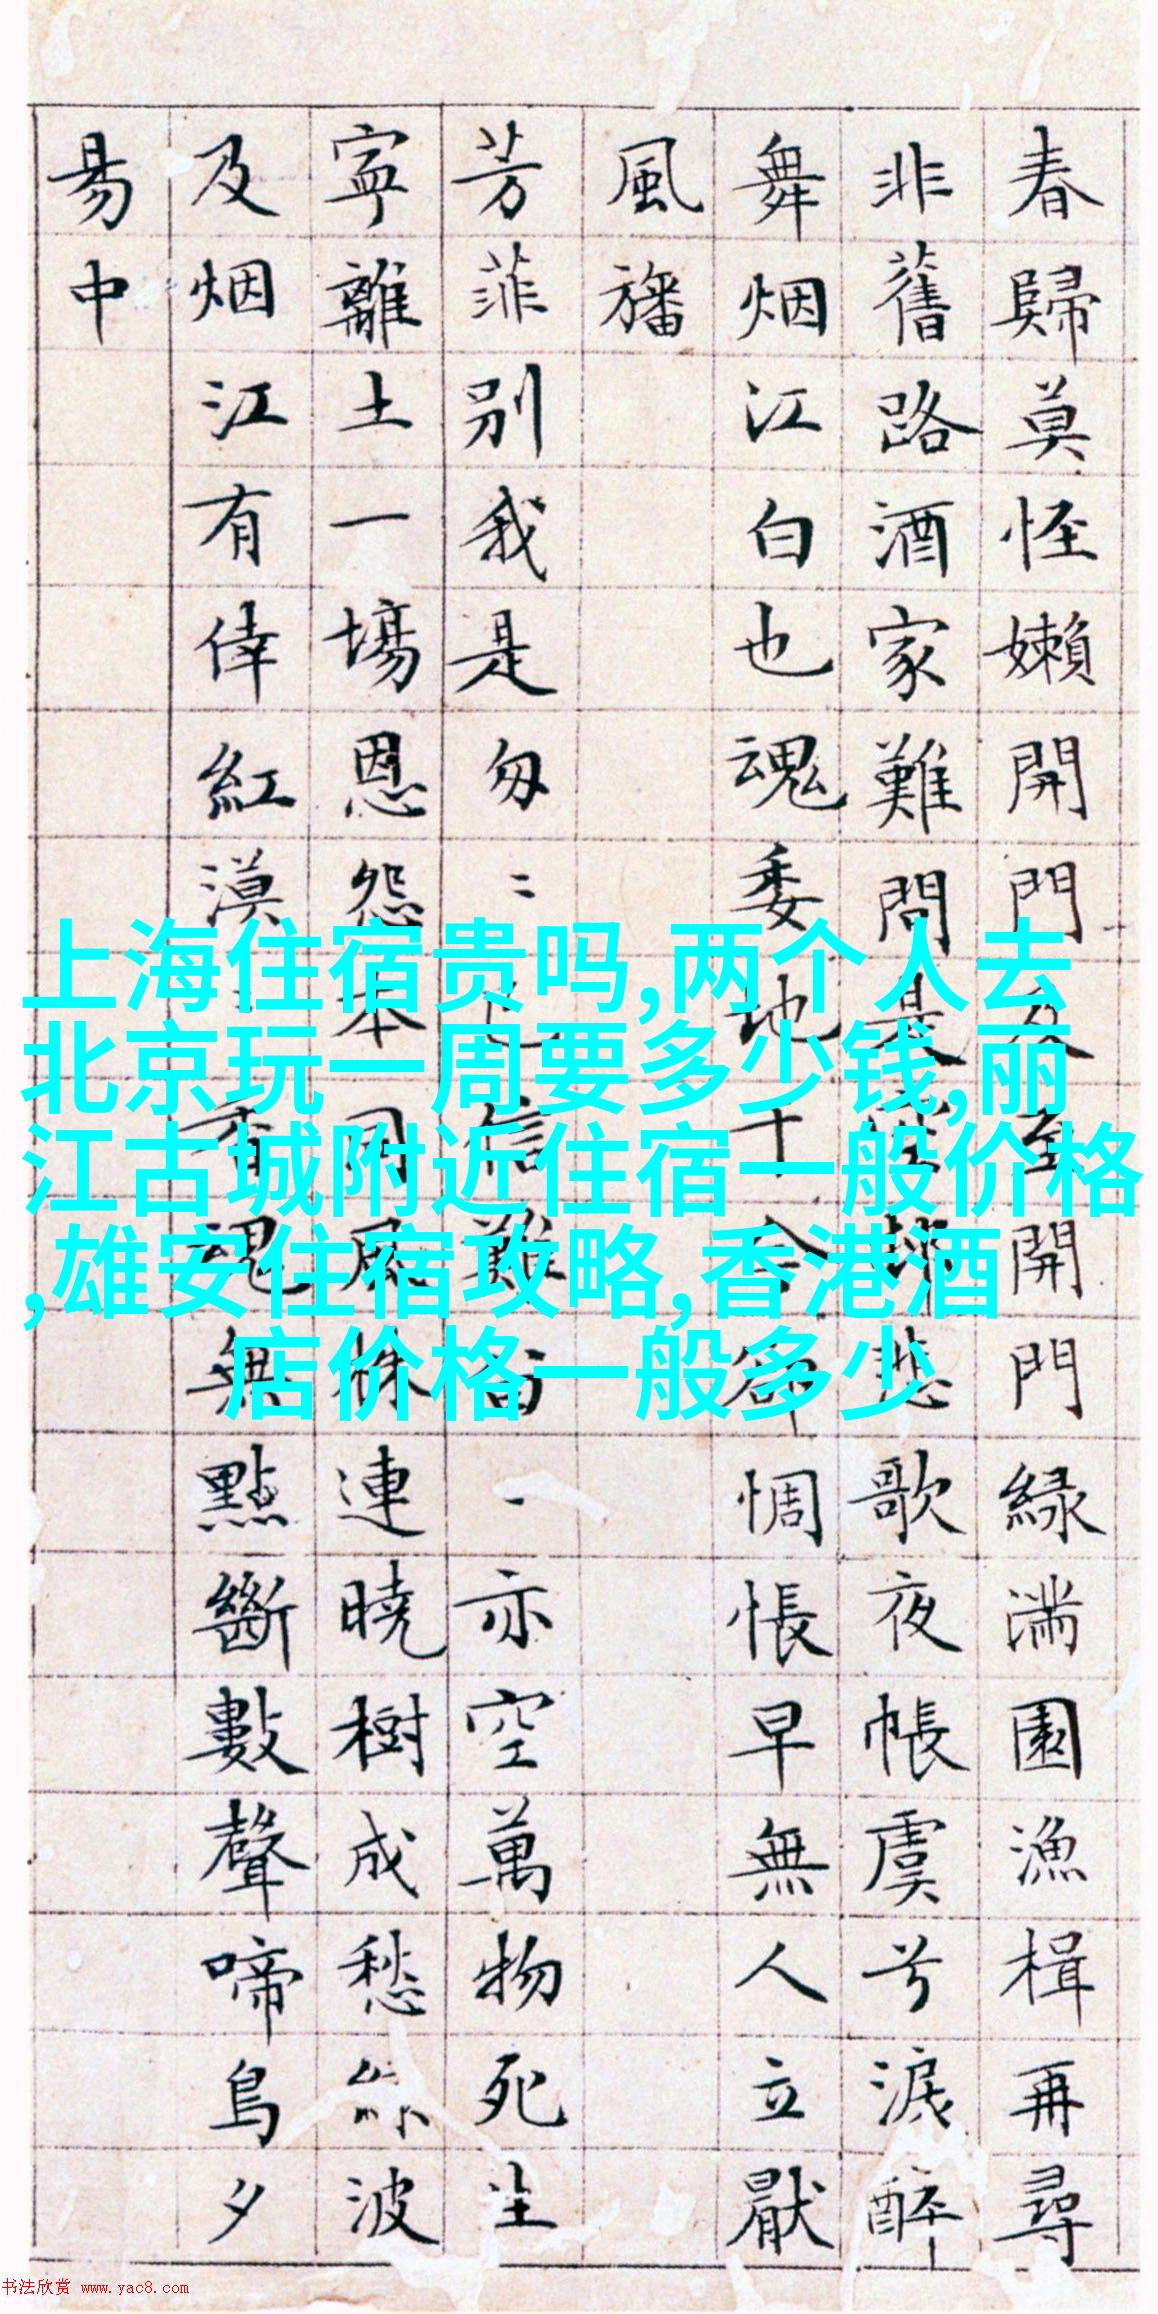 春歸莫怪嬾開門及至開門緑滿園漁楫再尋
非舊路酒家難問是空村悲歌夜帳虞兮淚醉
舞烟江白也魂委地于今卻惆悵早無人立厭
風旛
芳菲别我是匆〻已信難留一亦空萬物死生
寧離土一場恩怨本同風株連曉樹成愁綠波
及烟江有倖紅漠〻香魂無點斷數聲啼鳥夕
昜中
上海住宿贵吗,两个人去
北京玩一周要多少钱,丽
江古城附近住宿一般价格
,雄安住宿攻略,香港酒
店价格一般多少
书法欣赏 www.yac8.com